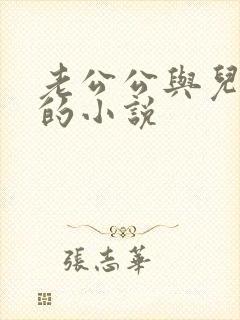 老公公與兒
的小說
張志華